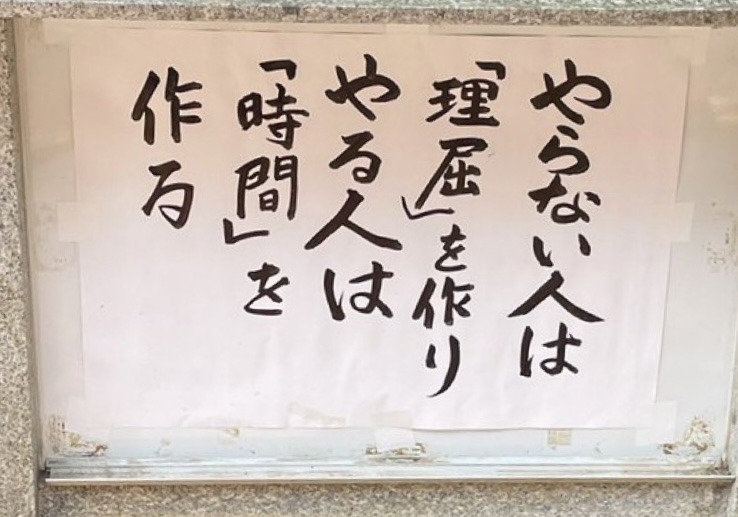 やらない人は
「理屈」を作り
やる人は
「時間」を
作る